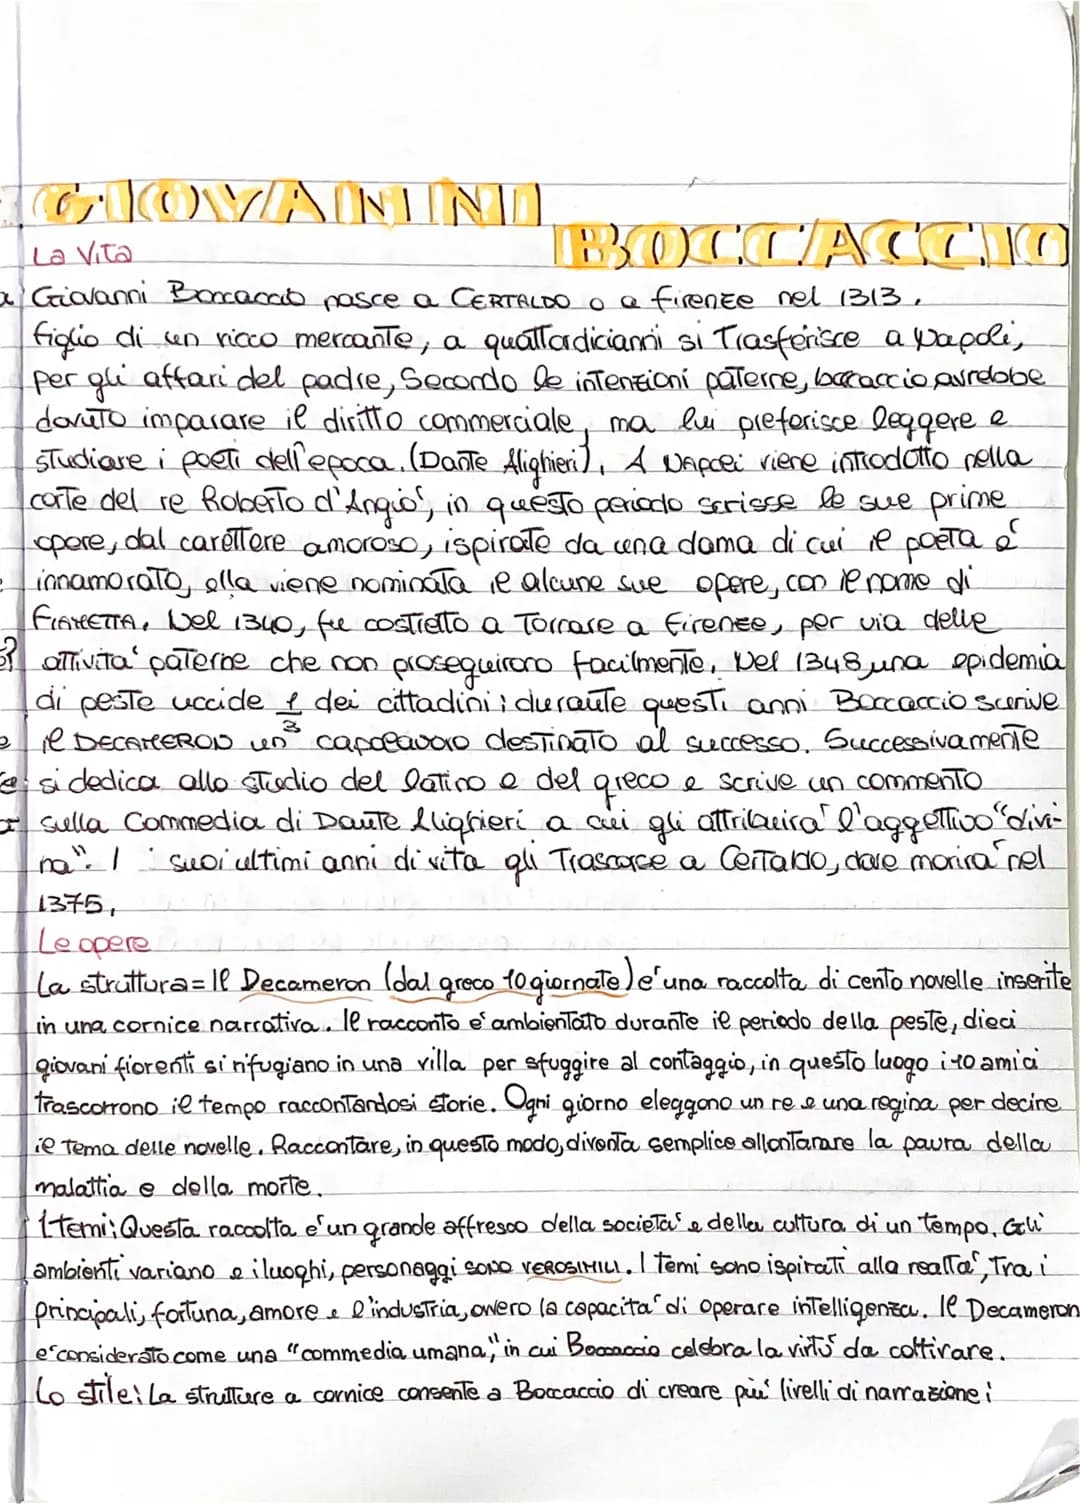 GIOVANNI
BOCCACCIO
La Vita
Giovanni Boccaccio nasce a CERTALDO o a firenze nel 1313.
figlio di un ricco mercante, a quattordicianni si Trasferisce a Napoli,
per gli affari del padre, Secondo le intenzioni paterne, boccaccio avrebbe
dovuto imparare il diritto commerciale, ma lui preferisce leggere e
studiare i poeti dell'epoca. (Dante Alighieri). A Napoli viene introdotto nella
corte del re Roberto d'Angiò, in questo periodo scrisse le sue prime
opere, dal carattere amoroso, ispirate da una dama di cui il poeta è
innamorato, ella viene nominata il alcune sue opere, con il nome di
FIAMETTA. Nel 1340, fu costretto a Tornare a firenze, per via delle
attivita' paterne che non proseguirono facilmente. Nel 1348 una epidemia
di peste uccide 1/3 dei cittadini; durante questi anni Boccaccio scrive
il DECAMERON un capolavoro destinato al successo. Successivamente
si dedica allo studio del latino e del greco e scrive un commento
sulla Commedia di Dante Alighieri a cui gli attribuira' l'aggettivo "divi-
na". I suoi ultimi anni di vita gli Trascorse a Certaldo, dove morira' nel
1375.
Le opere
La struttura= Il Decameron (dal greco 10 giornate) e' una raccolta di cento novelle inserite
in una cornice narrativa. Il racconto e' ambientato durante il periodo della peste, dieci
giovani fiorenti si rifugiano in una villa per sfuggire al contaggio, in questo luogo i 10 amici
trascorrono il tempo raccontandosi storie. Ogni giorno eleggono un re e una regina per decire
il Tema delle novelle. Raccontare, in questo modo, diventa semplice allontanare la paura della
malattia e della morte.
I temi: Questa raccolta e' un grande affresco della societa' e della cultura di un tempo. Gli
ambienti variano e i luoghi, personaggi sono VEROSIMILI. I Temi sono ispirati alla realta', Tra i
principali, fortuna, amore e l'industria, ovvero la capacita' di operare intelligenza. Il Decameron
e' considerato come una "commedia umana," in cui Boccaccio celebra la virtu' da coltivare.
Lo stile: La strutture a cornice consente a Boccaccio di creare piu' livelli di narrazione: